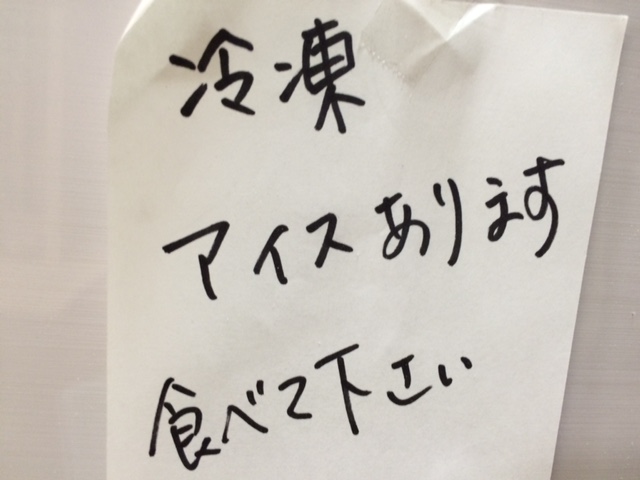 冷凍
アイスあります
食べて下さい